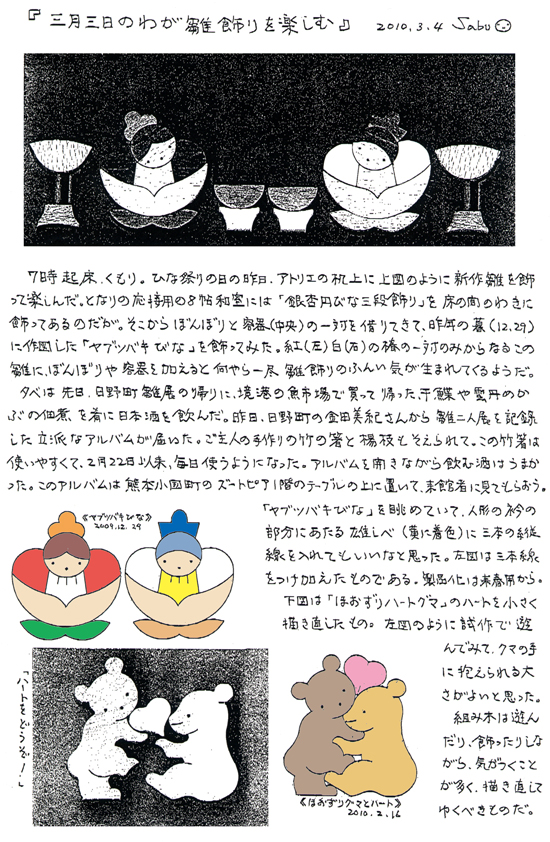 『三月三日のわが雛飾りを楽しむ』 2010.3.4 Sabu
7時起床、くもり。ひな祭りの日の昨日、アトリエの机上に上図のように新作雛を飾
って楽しんだ。となりの応接用の8帖和室には「銀杏円びな三段飾り」を床の間のわきに
飾ってあるのだが。そこからぼんぼりと容器(中央)の一対を借りてきて、昨年の暮(12.29)
に作図した「ヤブツバキびな」を飾ってみた。紅(左)白(右)の椿の一対のみからなるこの
雛に、ぼんぼりや容器を加えると何やら一層雛飾りのふんい気が生まれてくるようだ。
夕べは先日、日野町雛展の帰りに、境港の魚市場で買って帰った、干鰈や雲丹のか
ぶの佃煮を肴に日本酒を飲んだ。昨日、日野町の金田美紀さんから雛二人展を記録
した立派なアルバムが届いた。ご主人の手作りの竹の箸と楊枝もそえられて。この竹箸は
使いやすくて、2月22日以来、毎日使うようになった。アルバムを開きながら飲む酒はうまか
った。このアルバムは熊本小国町のズートピア1階のテーブルの上に置いて、来館者に見てもらおう。
「ヤブツバキびな」を眺めていて、人形の衿の
部分にあたる雄しべ(黄に着色)に三本の縦
線を入れてもいいなと思った。左図は三本線
をつけ加えたものである。製品化は来春用から。
下図は「ほおずりハートグマ」のハートを小さく
描き直したもの。左図のように試作で遊
んでみて、クマの手
に抱えられる大
きさがよいと思った。
組み木は遊ん
だり、飾ったりしな
がら、気がつくこと
が多く、描き直して
ゆくべきものだ。
《ヤブツバキびな》
2009.12.29
「ハートをどうぞ!」
《ほおずりグマとハート》
2010.2.16